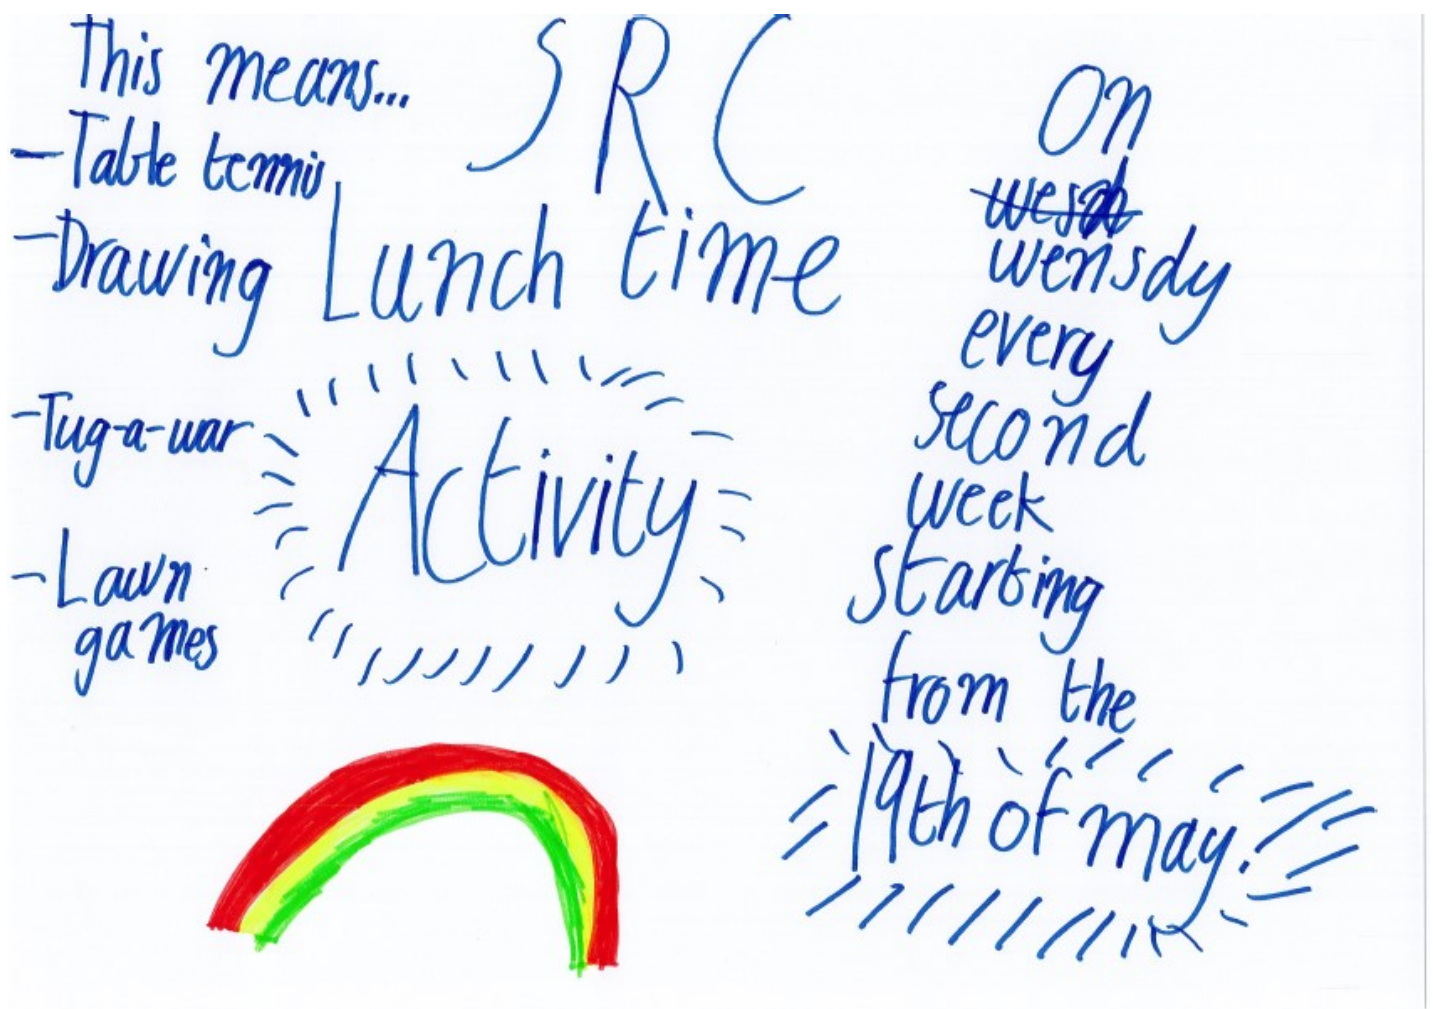 This means...
-Table tennis
-Drawing
-Tug-a-war
-Lawn
games
SRC
Lunch time
Activity
On
wensdy
every
second
week
starting
from the
19th of may.